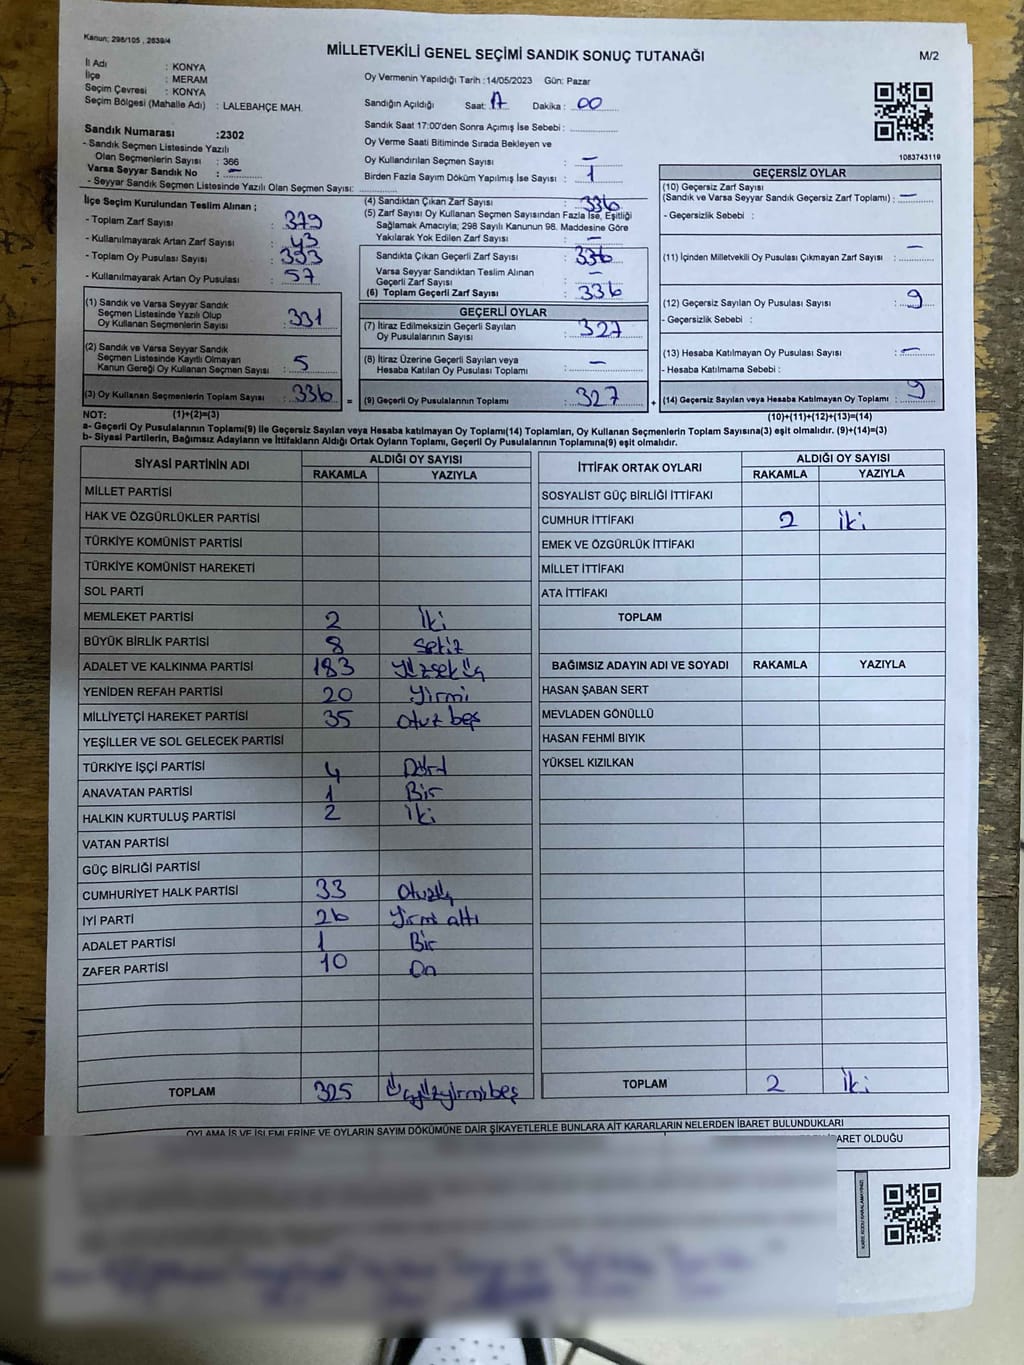 Kanun: 298/105 , 2839/4
MİLLETVEKİLİ GENEL SEÇİMİ SANDIK SONUÇ TUTANAĞI
M/2
İl Adı : KONYA
İlçe : MERAM
Seçim Çevresi : KONYA
Seçim Bölgesi (Mahalle Adı) : LALEBAHÇE MAH.
Sandık Numarası :2302
- Sandık Seçmen Listesinde Yazılı
Olan Seçmenlerin Sayısı : 366
Varsa Seyyar Sandık No : —
- Seyyar Sandık Seçmen Listesinde Yazılı Olan Seçmen Sayısı:
Oy Vermenin Yapıldığı Tarih :14/05/2023 Gün: Pazar
Sandığın Açıldığı Saat: 17 Dakika : 00
Sandık Saat 17:00'den Sonra Açımış İse Sebebi :
Oy Verme Saati Bitiminde Sırada Bekleyen ve
Oy Kullandırılan Seçmen Sayısı : —
Birden Fazla Sayım Döküm Yapılmış İse Sayısı : 1
1083743119
İlçe Seçim Kurulundan Teslim Alınan ;
- Toplam Zarf Sayısı : 379
- Kullanılmayarak Artan Zarf Sayısı : 43
- Toplam Oy Pusulası Sayısı : 393
- Kullanılmayarak Artan Oy Pusulası : 57
(1) Sandık ve Varsa Seyyar Sandık
Seçmen Listesinde Yazılı Olup
Oy Kullanan Seçmenlerin Sayısı : 331
(2) Sandık ve Varsa Seyyar Sandık
Seçmen Listesinde Kayıtlı Olmayan
Kanun Gereği Oy Kullanan Seçmen Sayısı : 5
(3) Oy Kullanan Seçmenlerin Toplam Sayısı : 336 =
(4) Sandıktan Çıkan Zarf Sayısı : 336
(5) Zarf Sayısı Oy Kullanan Seçmen Sayısından Fazla İse, Eşitliği
Sağlamak Amacıyla; 298 Sayılı Kanunun 98. Maddesine Göre
Yakılarak Yok Edilen Zarf Sayısı : —
Sandıkta Çıkan Geçerli Zarf Sayısı : 336
Varsa Seyyar Sandıktan Teslim Alınan
Geçerli Zarf Sayısı : —
(6) Toplam Geçerli Zarf Sayısı : 336
GEÇERLİ OYLAR
(7) İtiraz Edilmeksizin Geçerli Sayılan
Oy Pusulalarının Sayısı : 327
(8) İtiraz Üzerine Geçerli Sayılan veya
Hesaba Katılan Oy Pusulası Toplamı : —
(9) Geçerli Oy Pusulalarının Toplamı : 327 +
GEÇERSİZ OYLAR
(10) Geçersiz Zarf Sayısı
(Sandık ve Varsa Seyyar Sandık Geçersiz Zarf Toplamı) : —
- Geçersizlik Sebebi :
(11) İçinden Milletvekili Oy Pusulası Çıkmayan Zarf Sayısı : —
(12) Geçersiz Sayılan Oy Pusulası Sayısı : 9
- Geçersizlik Sebebi :
(13) Hesaba Katılmayan Oy Pusulası Sayısı : —
- Hesaba Katılmama Sebebi :
(14) Geçersiz Sayılan veya Hesaba Katılmayan Oy Toplamı : 9
NOT: (1)+(2)=(3) (10)+(11)+(12)+(13)=(14)
a- Geçerli Oy Pusulalarının Toplamı(9) ile Geçersiz Sayılan veya Hesaba katılmayan Oy Toplamı(14) Toplamları, Oy Kullanan Seçmenlerin Toplam Sayısına(3) eşit olmalıdır. (9)+(14)=(3)
b- Siyasi Partilerin, Bağımsız Adayların ve İttifakların Aldığı Ortak Oyların Toplamı, Geçerli Oy Pusulalarının Toplamına(9) eşit olmalıdır.
SİYASİ PARTİNİN ADI ALDIĞI OY SAYISI
RAKAMLA YAZIYLA
MİLLET PARTİSİ
HAK VE ÖZGÜRLÜKLER PARTİSİ
TÜRKİYE KOMÜNİST PARTİSİ
TÜRKİYE KOMÜNİST HAREKETİ
SOL PARTİ
MEMLEKET PARTİSİ 2 İki
BÜYÜK BİRLİK PARTİSİ 8 Sekiz
ADALET VE KALKINMA PARTİSİ 183 Yüzseküç
YENİDEN REFAH PARTİSİ 20 Yirmi
MİLLİYETÇİ HAREKET PARTİSİ 35 Otuz beş
YEŞİLLER VE SOL GELECEK PARTİSİ
TÜRKİYE İŞÇİ PARTİSİ 4 Dörd
ANAVATAN PARTİSİ 1 Bir
HALKIN KURTULUŞ PARTİSİ 2 İki
VATAN PARTİSİ
GÜÇ BİRLİĞİ PARTİSİ
CUMHURİYET HALK PARTİSİ 33 Otuzüç
İYİ PARTİ 26 Yirmi altı
ADALET PARTİSİ 1 Bir
ZAFER PARTİSİ 10 On
TOPLAM 325 Üçyüzyirmibeş
İTTİFAK ORTAK OYLARI ALDIĞI OY SAYISI
RAKAMLA YAZIYLA
SOSYALİST GÜÇ BİRLİĞİ İTTİFAKI
CUMHUR İTTİFAKI 2 İki
EMEK VE ÖZGÜRLÜK İTTİFAKI
MİLLET İTTİFAKI
ATA İTTİFAKI
TOPLAM
BAĞIMSIZ ADAYIN ADI VE SOYADI RAKAMLA YAZIYLA
HASAN ŞABAN SERT
MEVLADEN GÖNÜLLÜ
HASAN FEHMİ BIYIK
YÜKSEL KIZILKAN
TOPLAM 2 İki
OYLAMA İŞ VE İŞLEMLERİNE VE OYLARIN SAYIM DÖKÜMÜNE DAİR ŞİKAYETLERLE BUNLARA AİT KARARLARIN NELERDEN İBARET BULUNDUKLARI
İBARET OLDUĞU